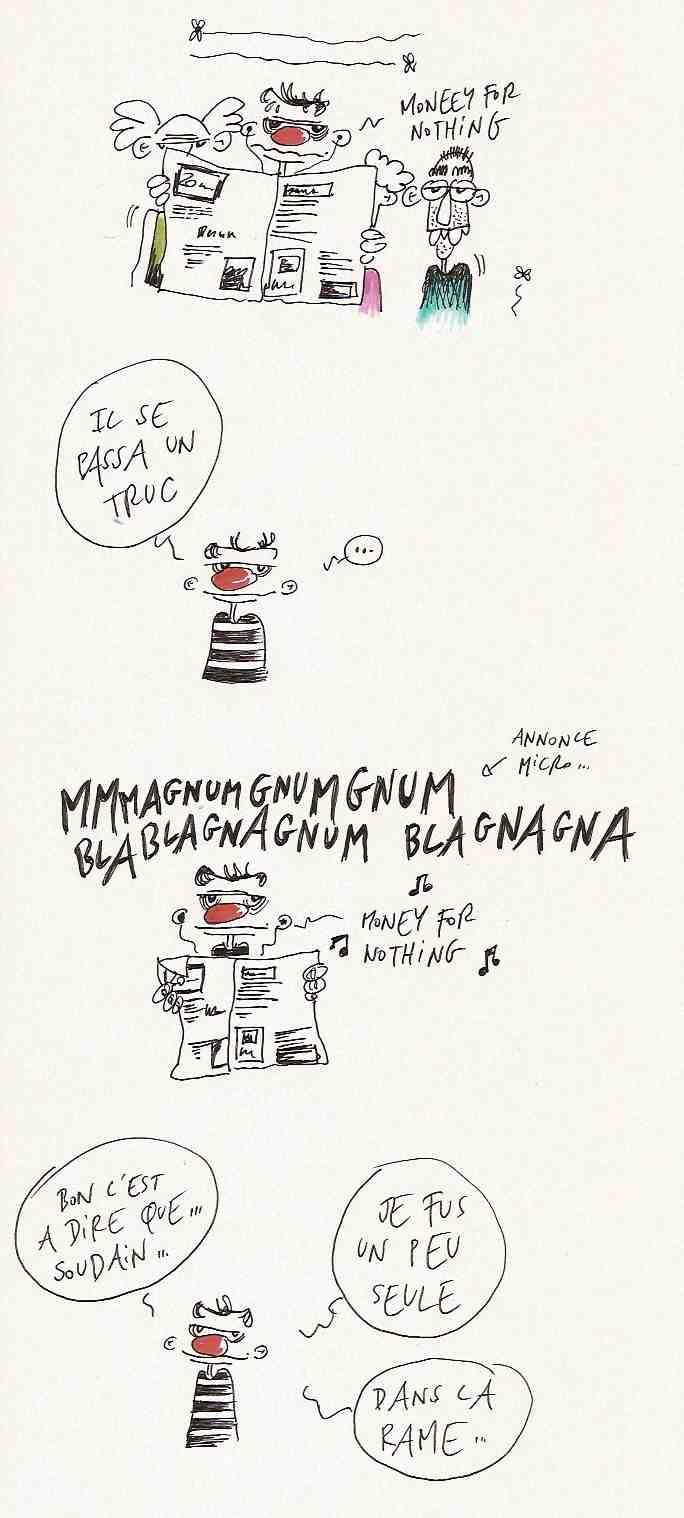 MONEEY FOR
NOTHING
IL SE
PASSA UN
TRUC
...
ANNONCE
MICRO...
MMMAGNUMGNUMGNUM
BLABLAGNAGNUM BLAGNAGNA
MONEY FOR
NOTHING
BON C'EST
A DIRE QUE...
SOUDAIN...
JE FUS
UN PEU
SEULE
DANS LA
RAME...